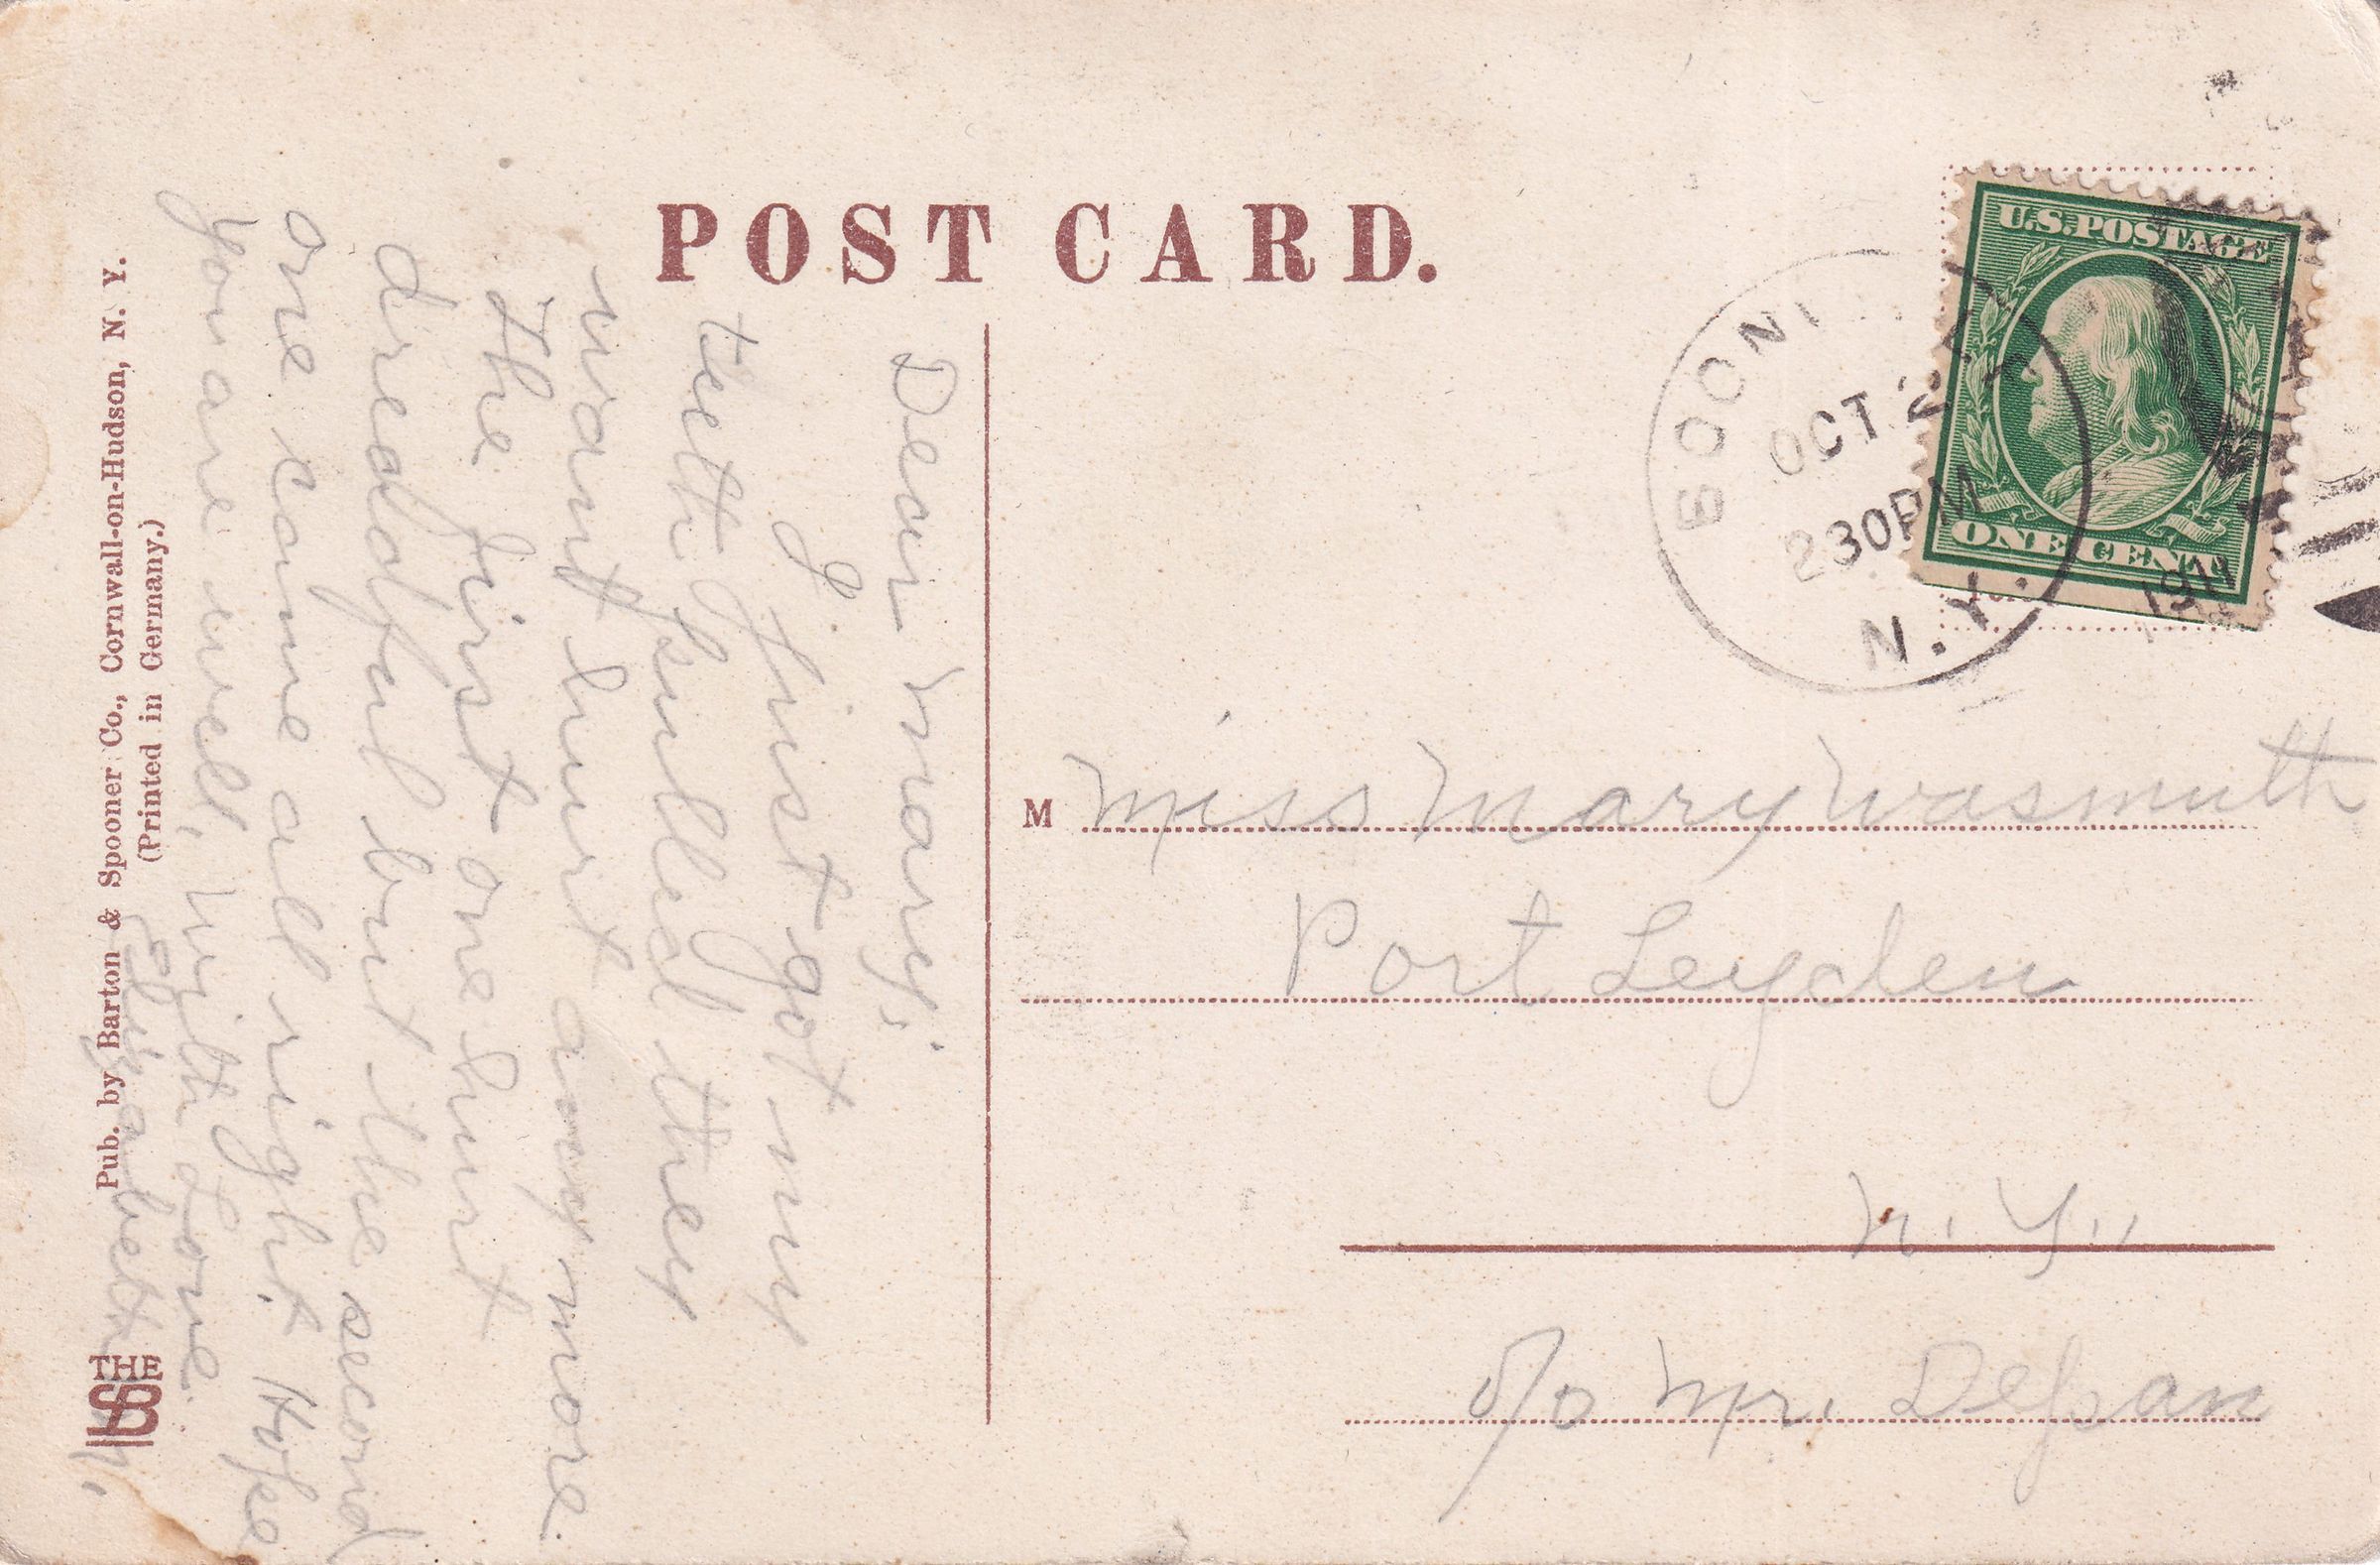 POST CARD.
U.S. POSTAGE
ONE CENT
BOON
OCT 2
2 30 PM
N.Y.
1911
Dear Mary;
I just got my
teeth pulled they
want hurt any more.
The first one hurt
dreadful but the second
one came all right. Hope
you are well, With Love.
Elizabeth
M Miss Mary Wasmuth
Port Leyden
N. Y.,
c/o Mr. Depan
Pub. by Barton & Spooner Co., Cornwall-on-Hudson, N. Y.
(Printed in Germany.)
THE
SB